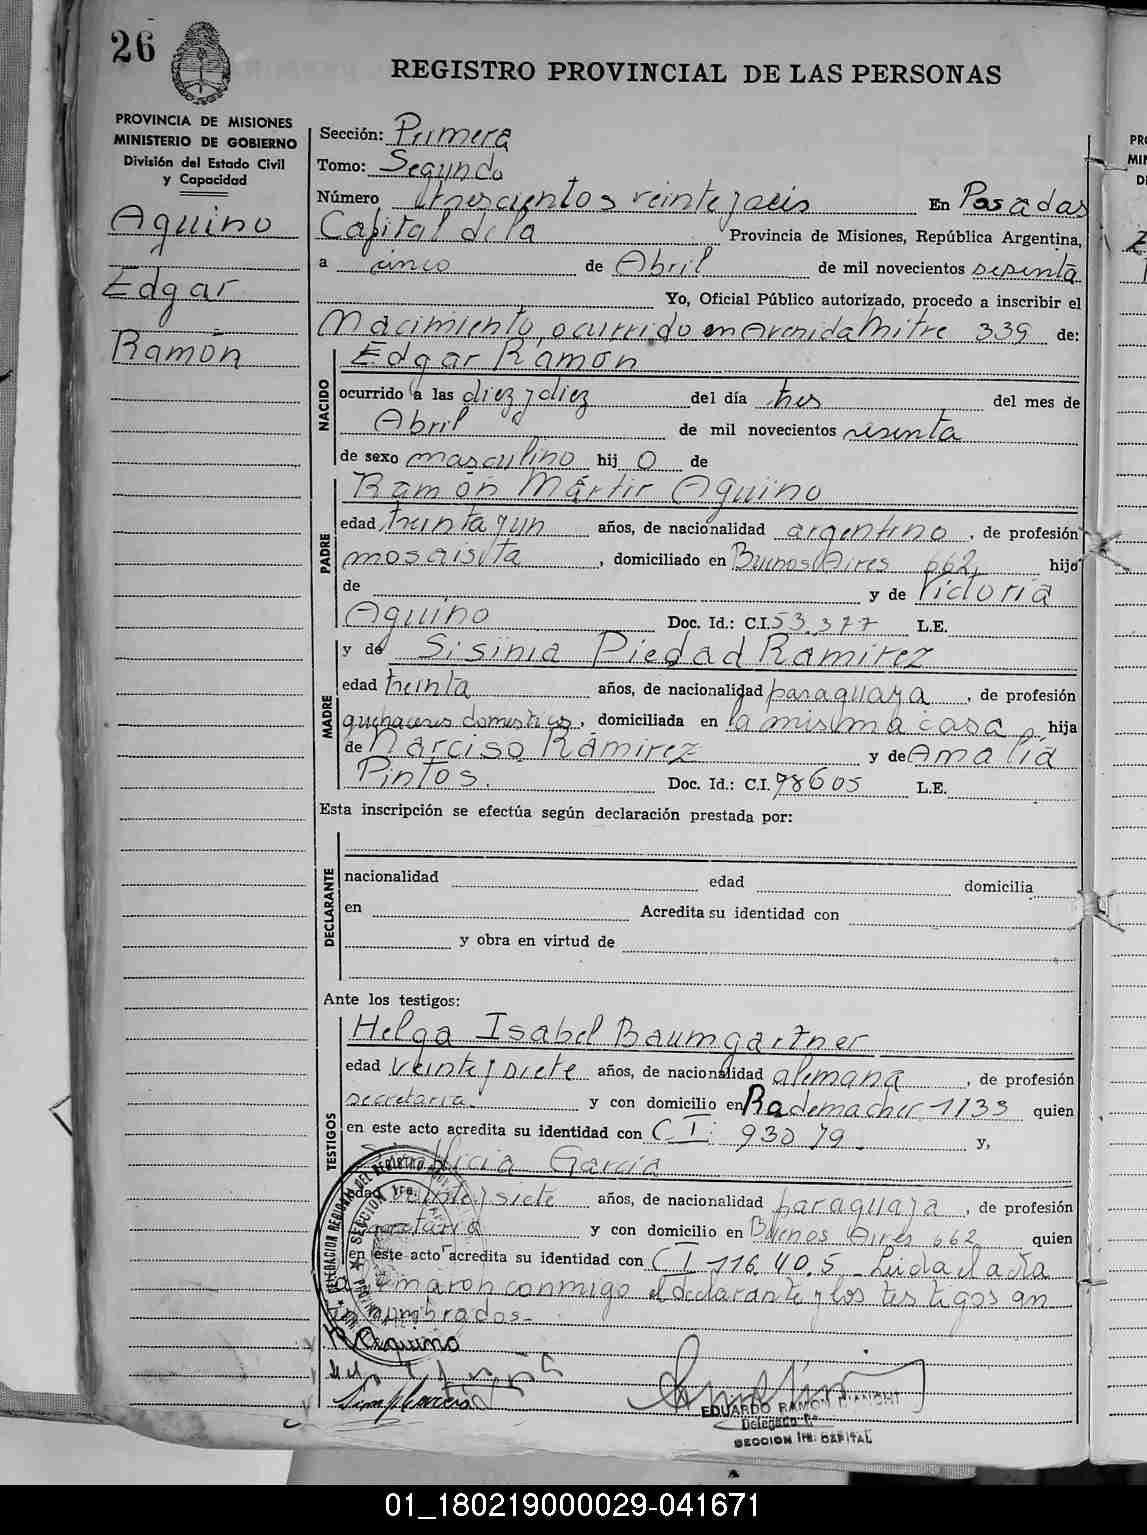 26
REGISTRO PROVINCIAL DE LAS PERSONAS
PROVINCIA DE MISIONES
MINISTERIO DE GOBIERNO
División del Estado Civil
y Capacidad
Aquino
Edgar
Ramón
Sección: Primera
Tomo: Segundo
Número trescientos veinte y seis En Posadas
Capital de la Provincia de Misiones, República Argentina,
a cinco de Abril de mil novecientos sesenta
Yo, Oficial Público autorizado, procedo a inscribir el
Nacimiento, ocurrido en Avenida Mitre 339 de:
NACIDO
Edgar Ramón
ocurrido a las diez y diez del día tres del mes de
Abril de mil novecientos sesenta
de sexo masculino hij o de
PADRE
Ramón Mártir Aquino
edad treinta y un años, de nacionalidad argentino, de profesión
mosaista, domiciliado en Buenos Aires 662, hijo
de y de Victoria
Aquino Doc. Id.: C.I. 53.377 L.E.
MADRE
y de Sisinia Piedad Ramirez
edad treinta años, de nacionalidad paraguaya, de profesión
quehaceres domesticos, domiciliada en la misma casa hija
de Narciso Ramirez y de Amalia
Pintos. Doc. Id.: C.I. 78605 L.E.
Esta inscripción se efectúa según declaración prestada por:
DECLARANTE
nacionalidad edad domicilia
en Acredita su identidad con
y obra en virtud de
Ante los testigos:
TESTIGOS
Helga Isabel Baumgartner
edad veinte y siete años, de nacionalidad alemana, de profesión
secretaria y con domicilio en Rademacher 1133 quien
en este acto acredita su identidad con C.I: 93079 y,
Alicia García
edad veinte y siete años, de nacionalidad paraguaya, de profesión
secretaria y con domicilio en Buenos Aires 662 quien
en este acto acredita su identidad con C I 116.405 Leida el acta
firmaron conmigo el declarante y los testigos an
nombrados.
R Aquino
EDUARDO RAMON
Delegado 1ª
SECCION 1ra. CAPITAL
01_180219000029-041671